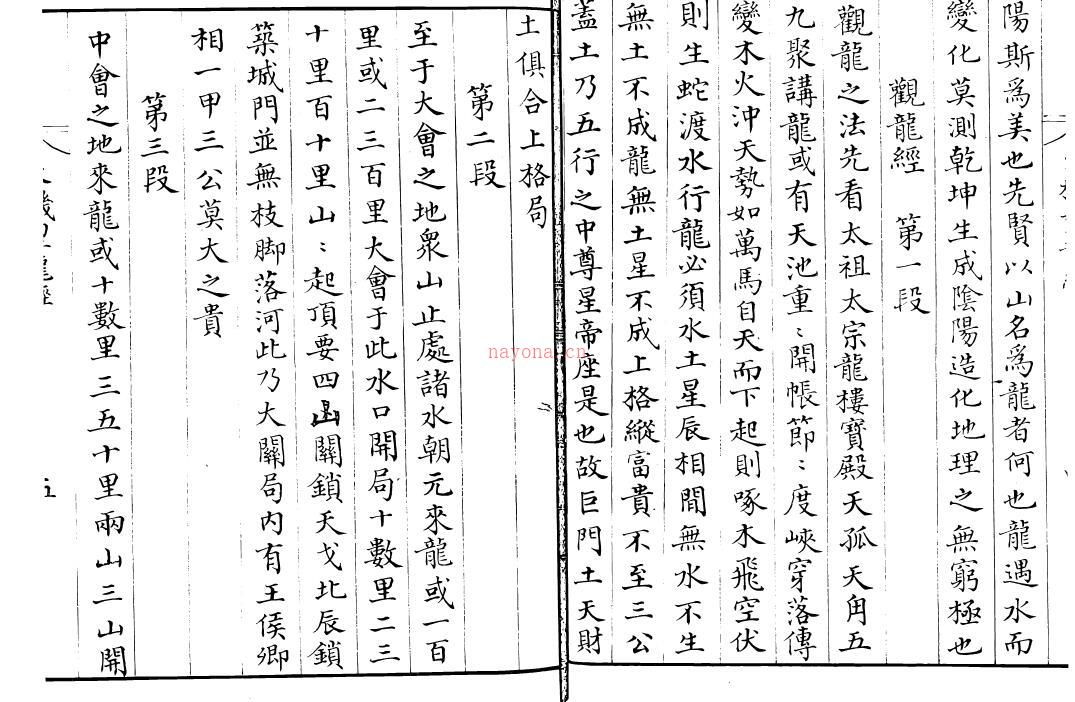 陽斯爲美也先賢以山名爲龍者何也龍遇水而
變化莫測乾坤生成陰陽造化地理之無窮極也
觀龍經　第一段
觀龍之法先看太祖太宗龍樓寶殿天孤天角五
九聚講龍或有天池重〻開帳節〻度峽穿落傳
變木火沖天勢如萬馬自天而下起則啄木飛空伏
則生蛇渡水行龍必須水土星辰相間無水不生
無土不成龍無土星不成上格縱富貴不至三公
蓋土乃五行之中尊星帝座是也故巨門土天財
土俱合上格局
第二段
至于大會之地衆山止處諸水朝元來龍或一百
里或二三百里大會于此水口開局十數里二三
十里百十里山〻起頂要四凾關鎖天戈北辰鎖
築城門並無枝脚落河此乃大關局内有王侯卿
相一甲三公莫大之貴
第三段
中會之地來龍或十數里三五十里兩山三山開
五
nayona.cn